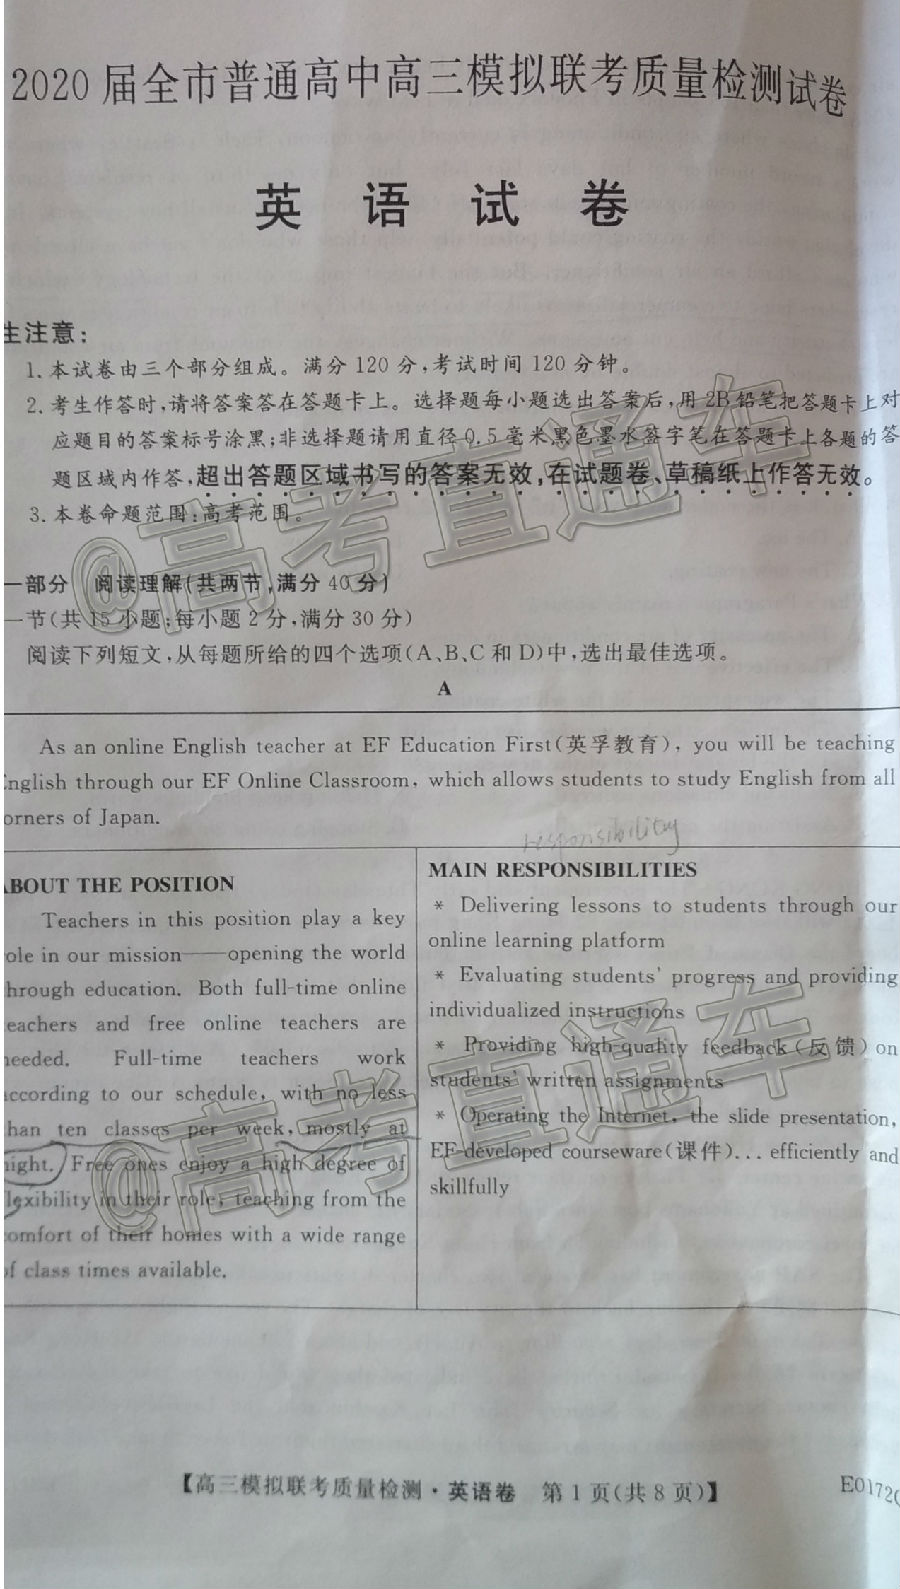 2020届全市普通高中高三模拟联考质量检测试卷
英 语 试 卷
生注意：
1. 本试卷由三个部分组成。满分120分，考试时间120分钟。
2. 考生作答时，请将答案答在答题卡上。选择题每小题选出答案后，用2B铅笔把答题卡上对
应题目的答案标号涂黑；非选择题请用直径0.5毫米黑色墨水签字笔在答题卡上各题的答
题区域内作答，超出答题区域书写的答案无效，在试题卷、草稿纸上作答无效。
3. 本卷命题范围：高考范围。
@高考直通车
一部分 阅读理解（共两节，满分40分）
一节（共15小题；每小题2分，满分30分）
阅读下列短文，从每题所给的四个选项（A、B、C和D）中，选出最佳选项。
A
As an online English teacher at EF Education First（英孚教育）, you will be teaching
nglish through our EF Online Classroom, which allows students to study English from all
orners of Japan.
responsibility
ABOUT THE POSITION
Teachers in this position play a key
ole in our mission——opening the world
hrough education. Both full-time online
eachers and free online teachers are
needed. Full-time teachers work
according to our schedule, with no less
than ten classes per week, mostly at
night. Free ones enjoy a high degree of
flexibility in their role, teaching from the
comfort of their homes with a wide range
of class times available.
MAIN RESPONSIBILITIES
* Delivering lessons to students through our
online learning platform
* Evaluating students' progress and providing
individualized instructions
* Providing high-quality feedback（反馈）on
students' written assignments
* Operating the Internet, the slide presentation,
EF-developed courseware（课件）... efficiently and
skillfully
@高考直通车
【高三模拟联考质量检测·英语卷 第1页（共8页）】
E0172